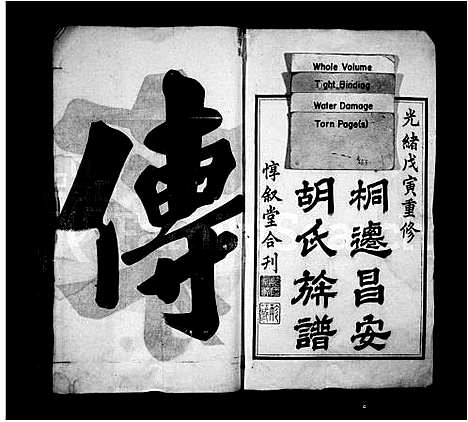 傳
Whole Volume
Tight Binding
Water Damage
Torn Page(s)
光緒戊寅重修
桐邊昌安
胡氏族譜
惇叙堂合刊